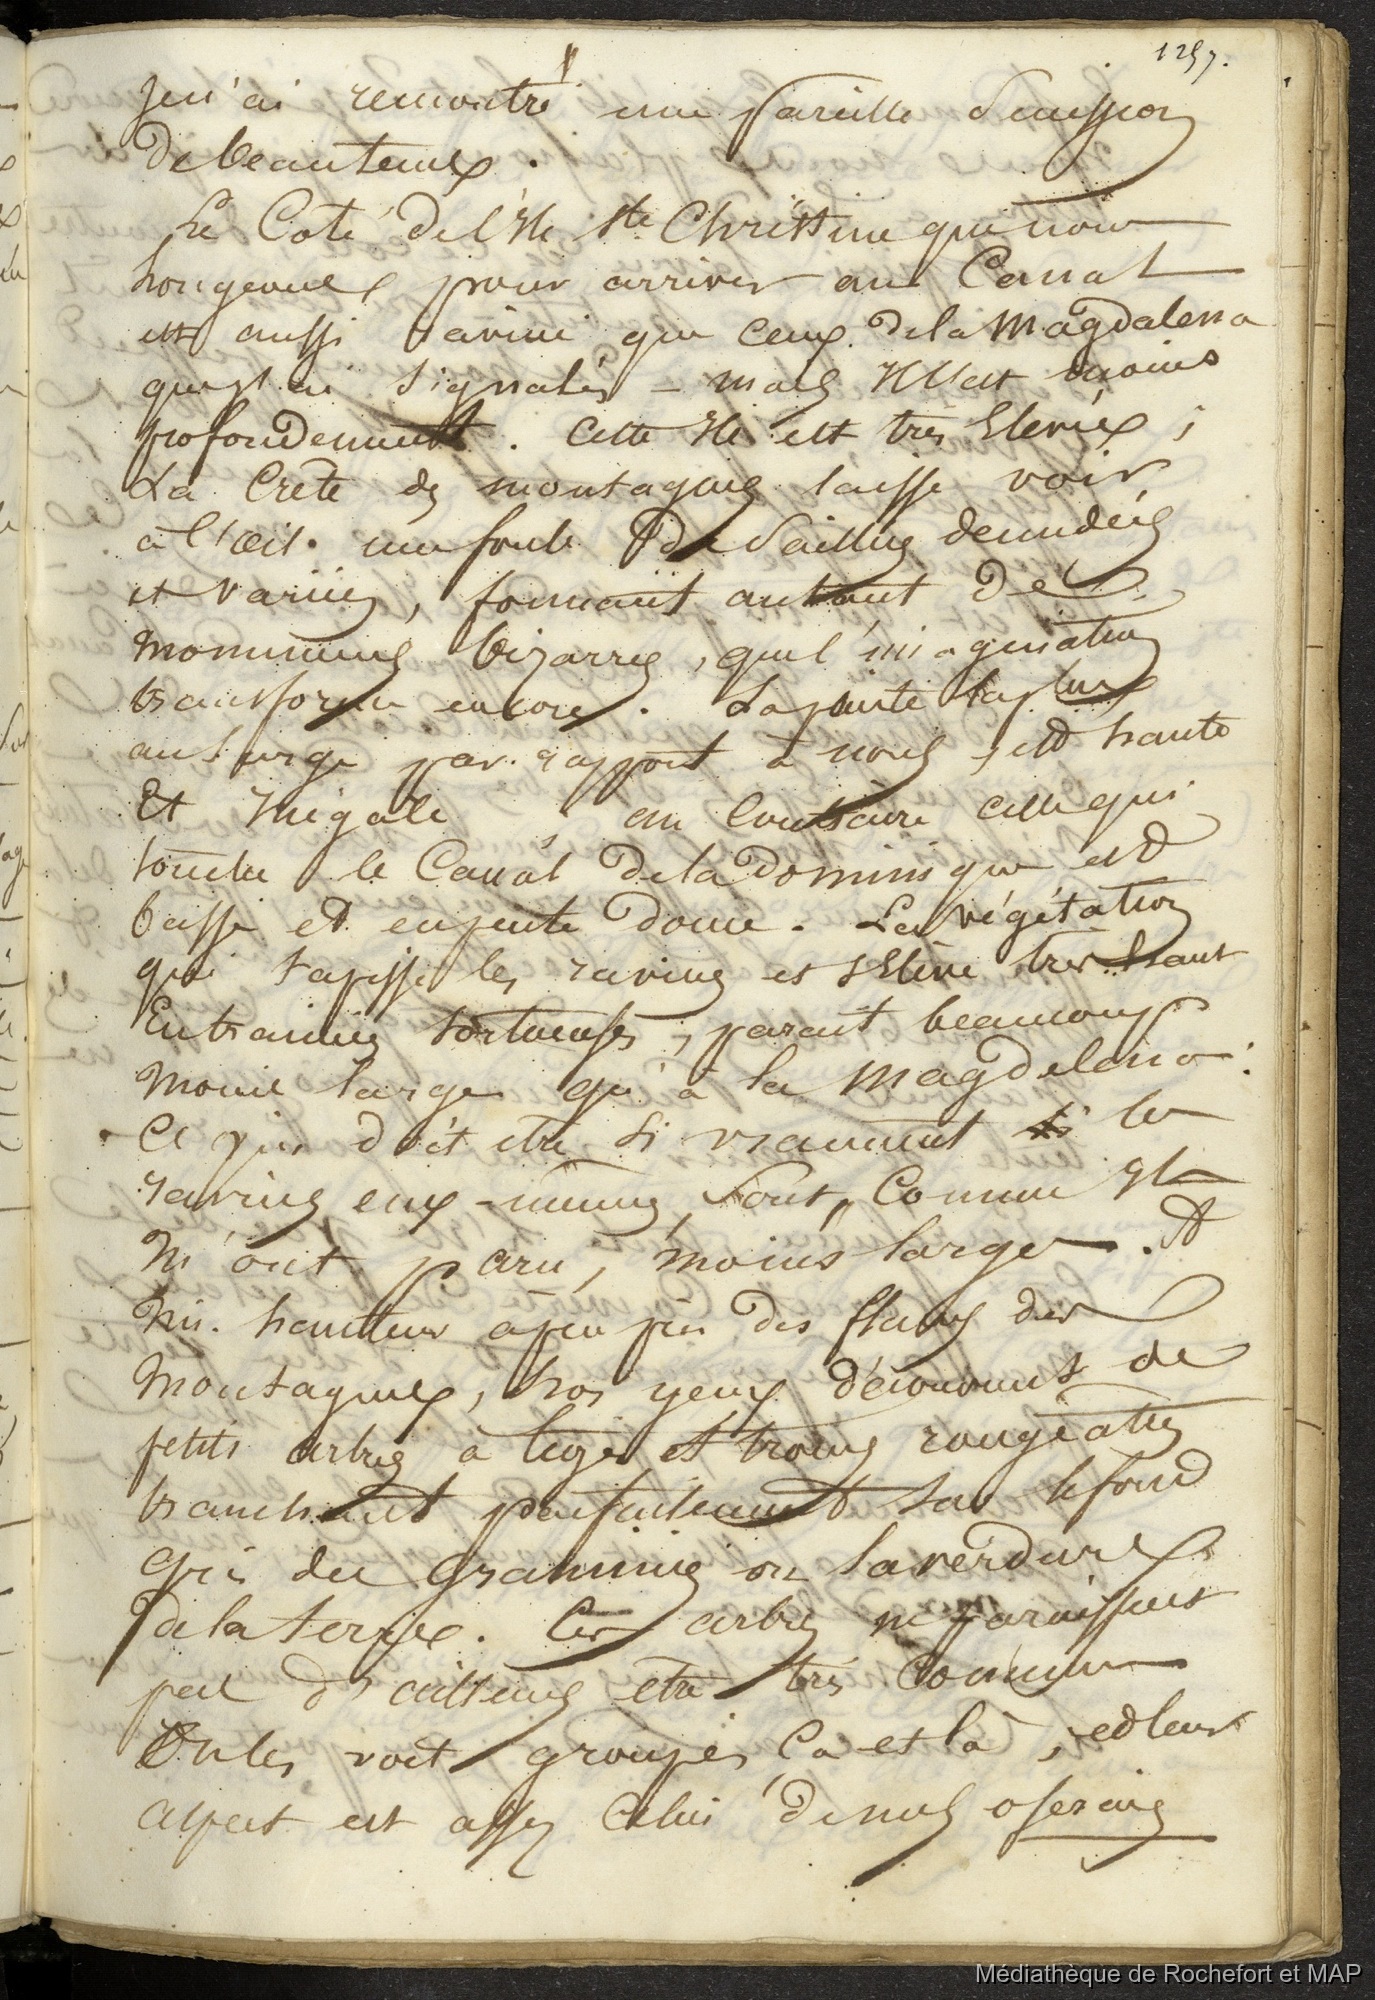 1257.
Je n'ai rencontré une pareille Succession
de beautemps.
Le Coté de l'Ile Ste Christine que nous
longeames pour arriver au Canal
est aussi raviné que ceux de la Magdalena
que j'ai signalés – mais Il l'est moins
profondement. Cette Ile est très Elevée;
La Crête des montagnes laisse voir
à l'œil une foule de Saillies denudées
et variées, formant autant de
monumens bizarres, que l'imagination
transforme encore. La pointe la plus
au large par rapport à nous, est haute
Et Inégale, au Contraire celle qui
touche le Canal de la Dominique est
basse et en pente douce. La végétation
qui tapisse les ravins et s'Elève très haut
En trainées tortueuses, parait beaucoup
moins large qu'à la Magdelena:
Ce qui doit etre si vraiment les
ravins eux-mêmes, sont, Comme Ils
M'ont paru, moins larges. A
Mi-hauteur à peu près des flancs des
Montagnes, nos yeux découvrent de
petits arbres à tiges et troncs rougeatres
tranchant parfaitement sur le fond
gris des Graminées ou la verdure
de la terre. Ces arbres ne paraissent
pas d'ailleurs etre très Communs
On les voit groupés Ça et là, et leur
aspect est assez Celui de nos oseraies
Médiathèque de Rochefort et MAP